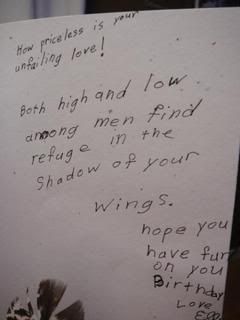 How priceless is your
unfailing love!
Both high and low
among men find
refuge in the
Shadow of your
wings.
hope you
have fun
on you
Birthday
Love